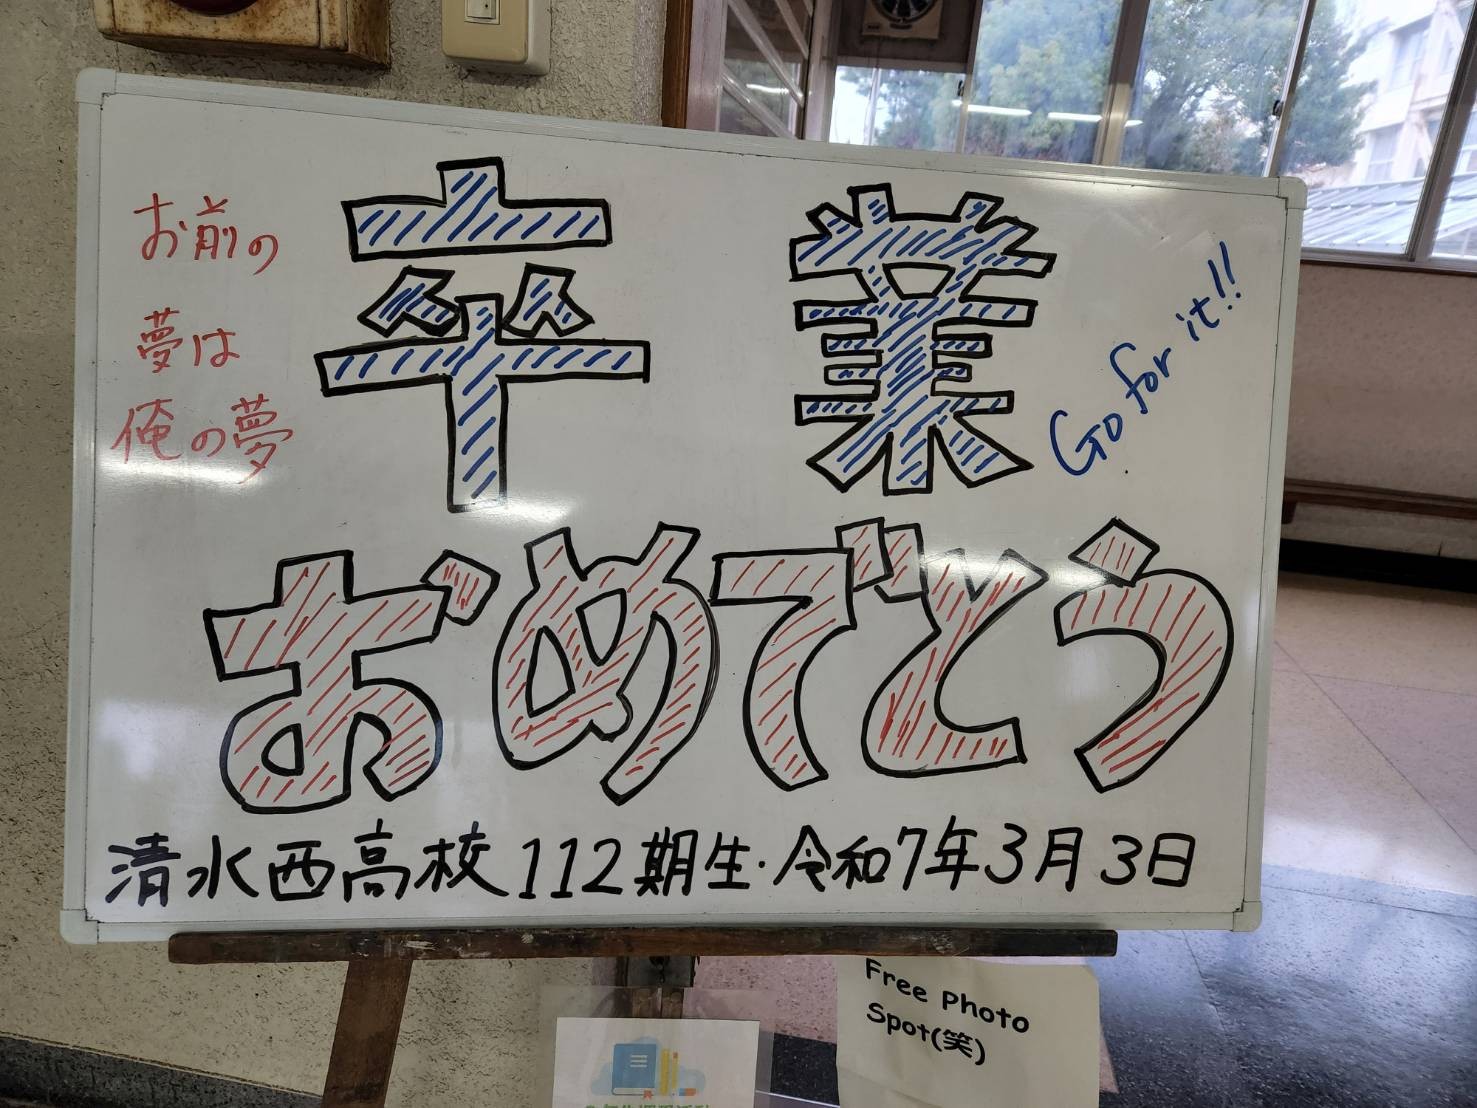 お前の
夢は
俺の夢
卒業
Go for it!!
おめでとう
清水西高校112期生・令和7年3月3日
Free Photo
Spot(笑)